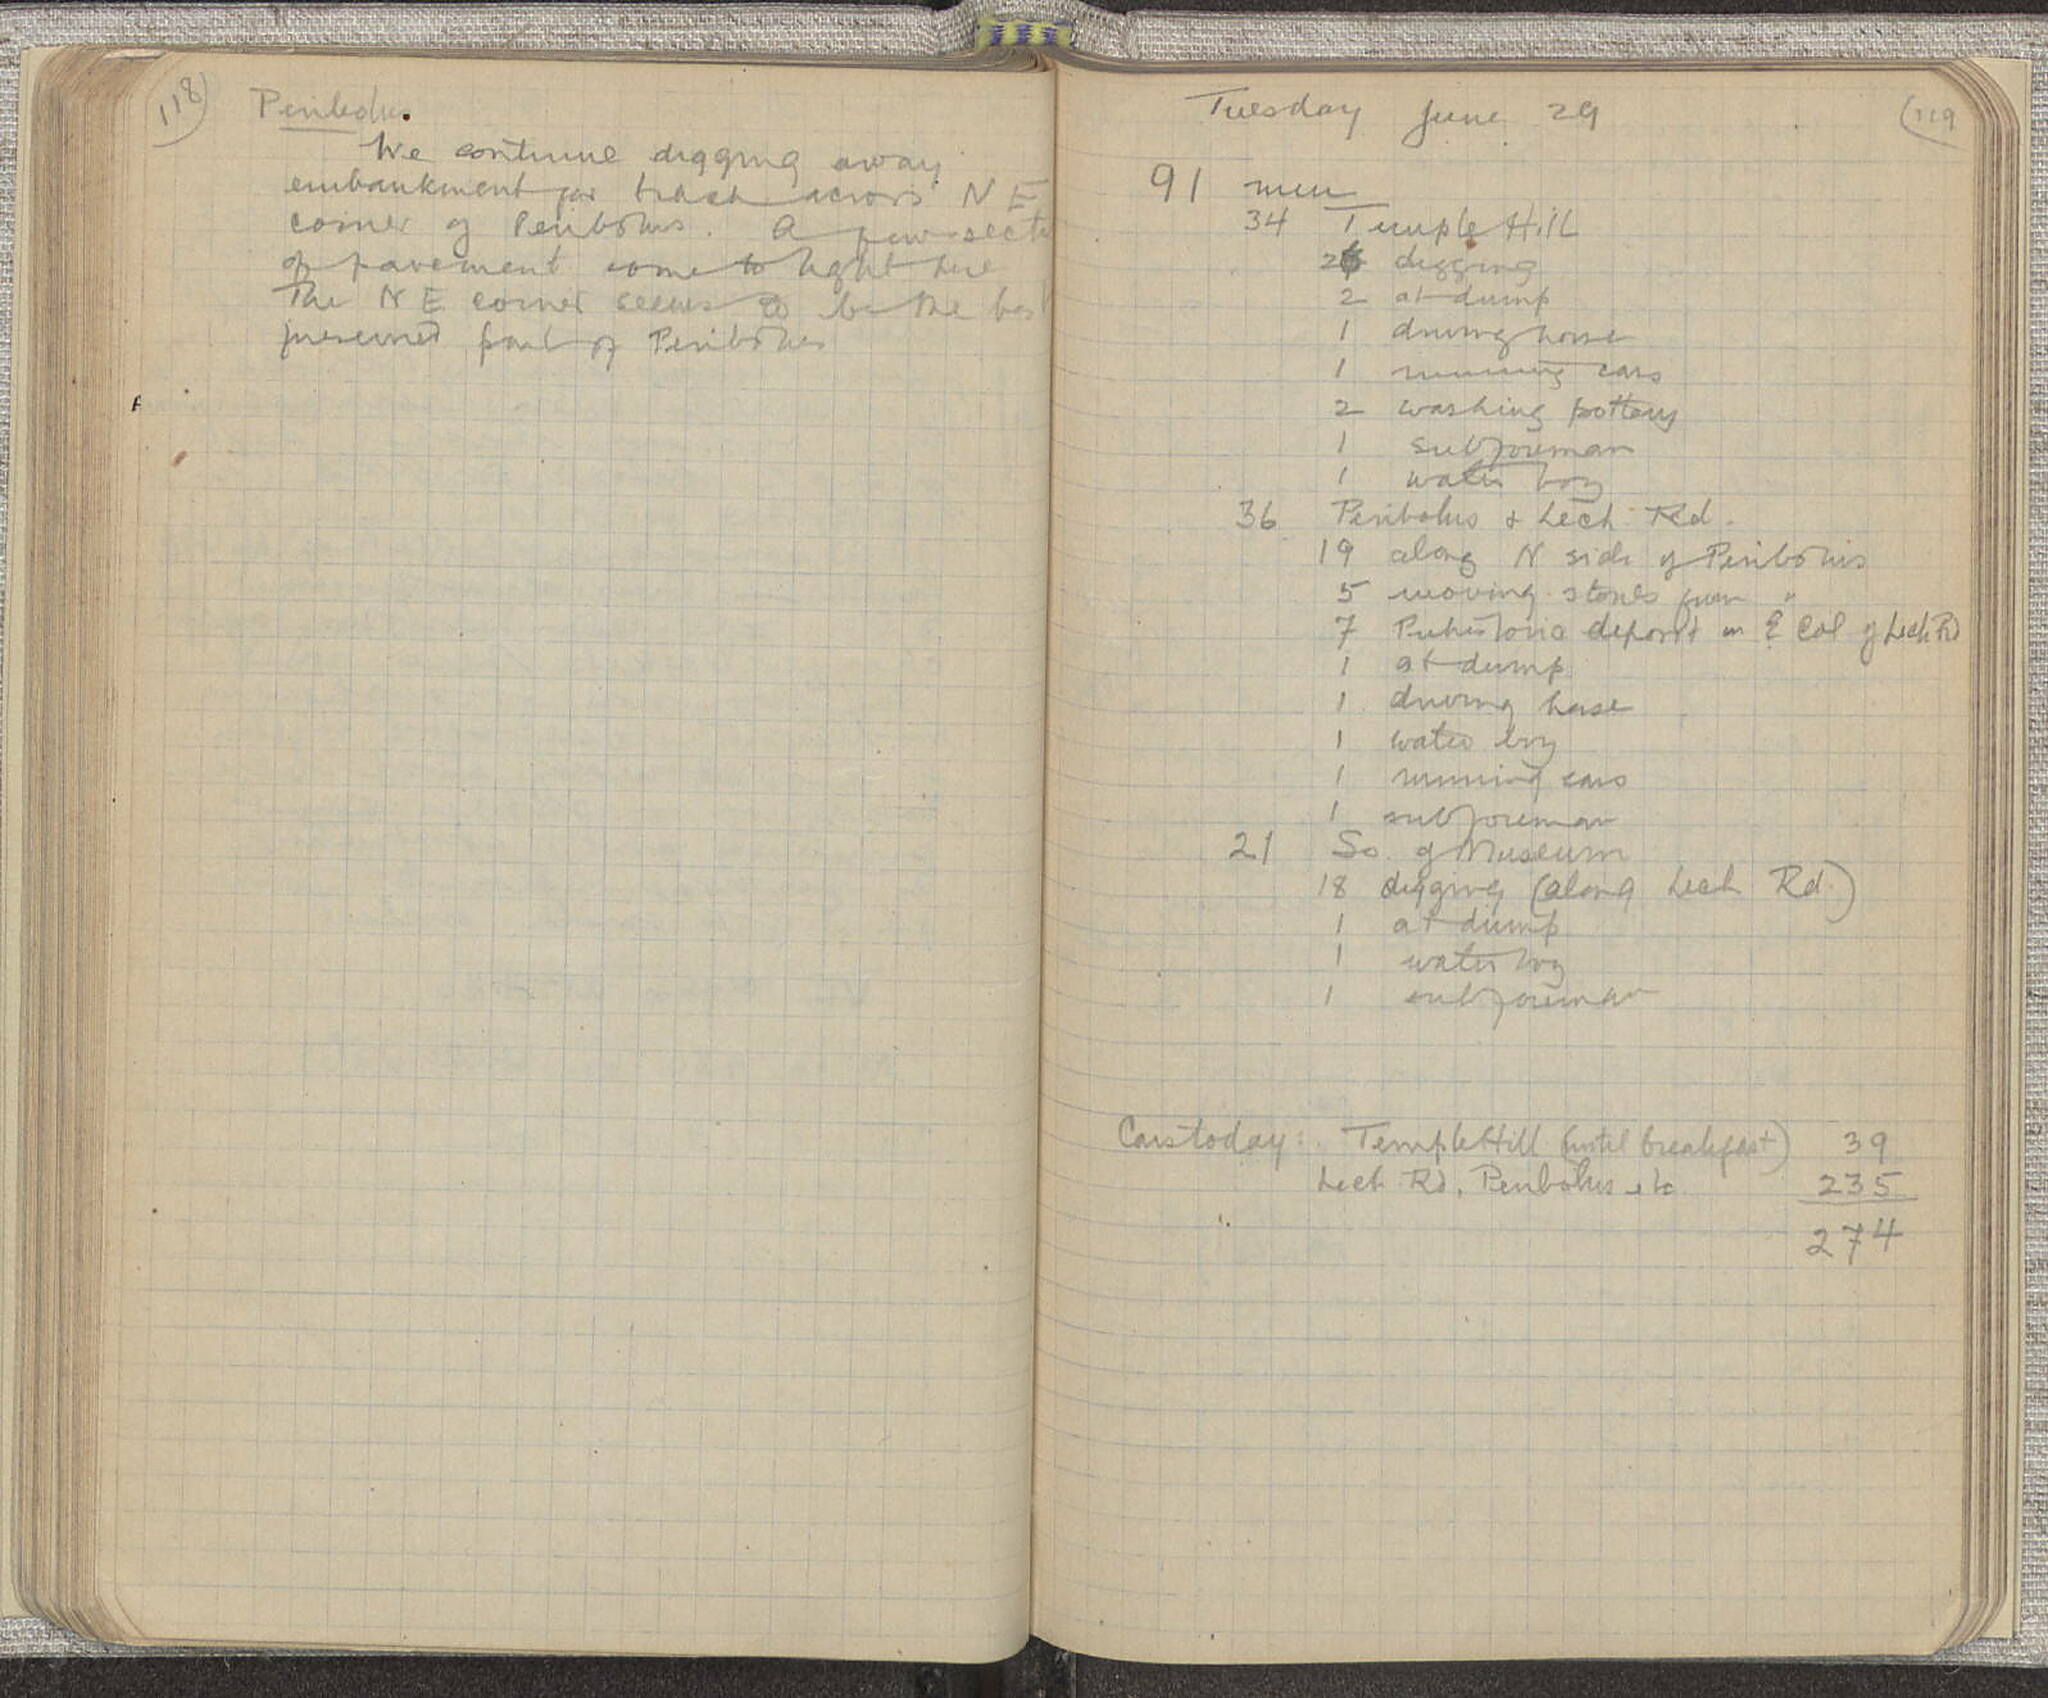 118
Peribolus.
We continue digging away
embankment for track across N E
corner of Peribolus. A few sects
of pavement come to light here
The N E corner seems to be the best
preserved part of Peribolus
Tuesday June 29
119
91 men
34 Temple Hill
26 digging
2 at dump
1 driving horse
1 running cars
2 washing pottery
1 subforeman
1 water boy
36 Peribolus & Lech Rd.
19 along N side of Peribolus
5 moving stones from "
7 Prehistoric deposit in E Col of Lech Rd
1 at dump
1 driving horse
1 water boy
1 running cars
1 subforeman
21 So. of Museum
18 digging (along Lech Rd.)
1 at dump
1 water boy
1 subforeman
Cars today: Temple Hill (until breakfast) 39
Lech Rd, Peribolus etc 235
274